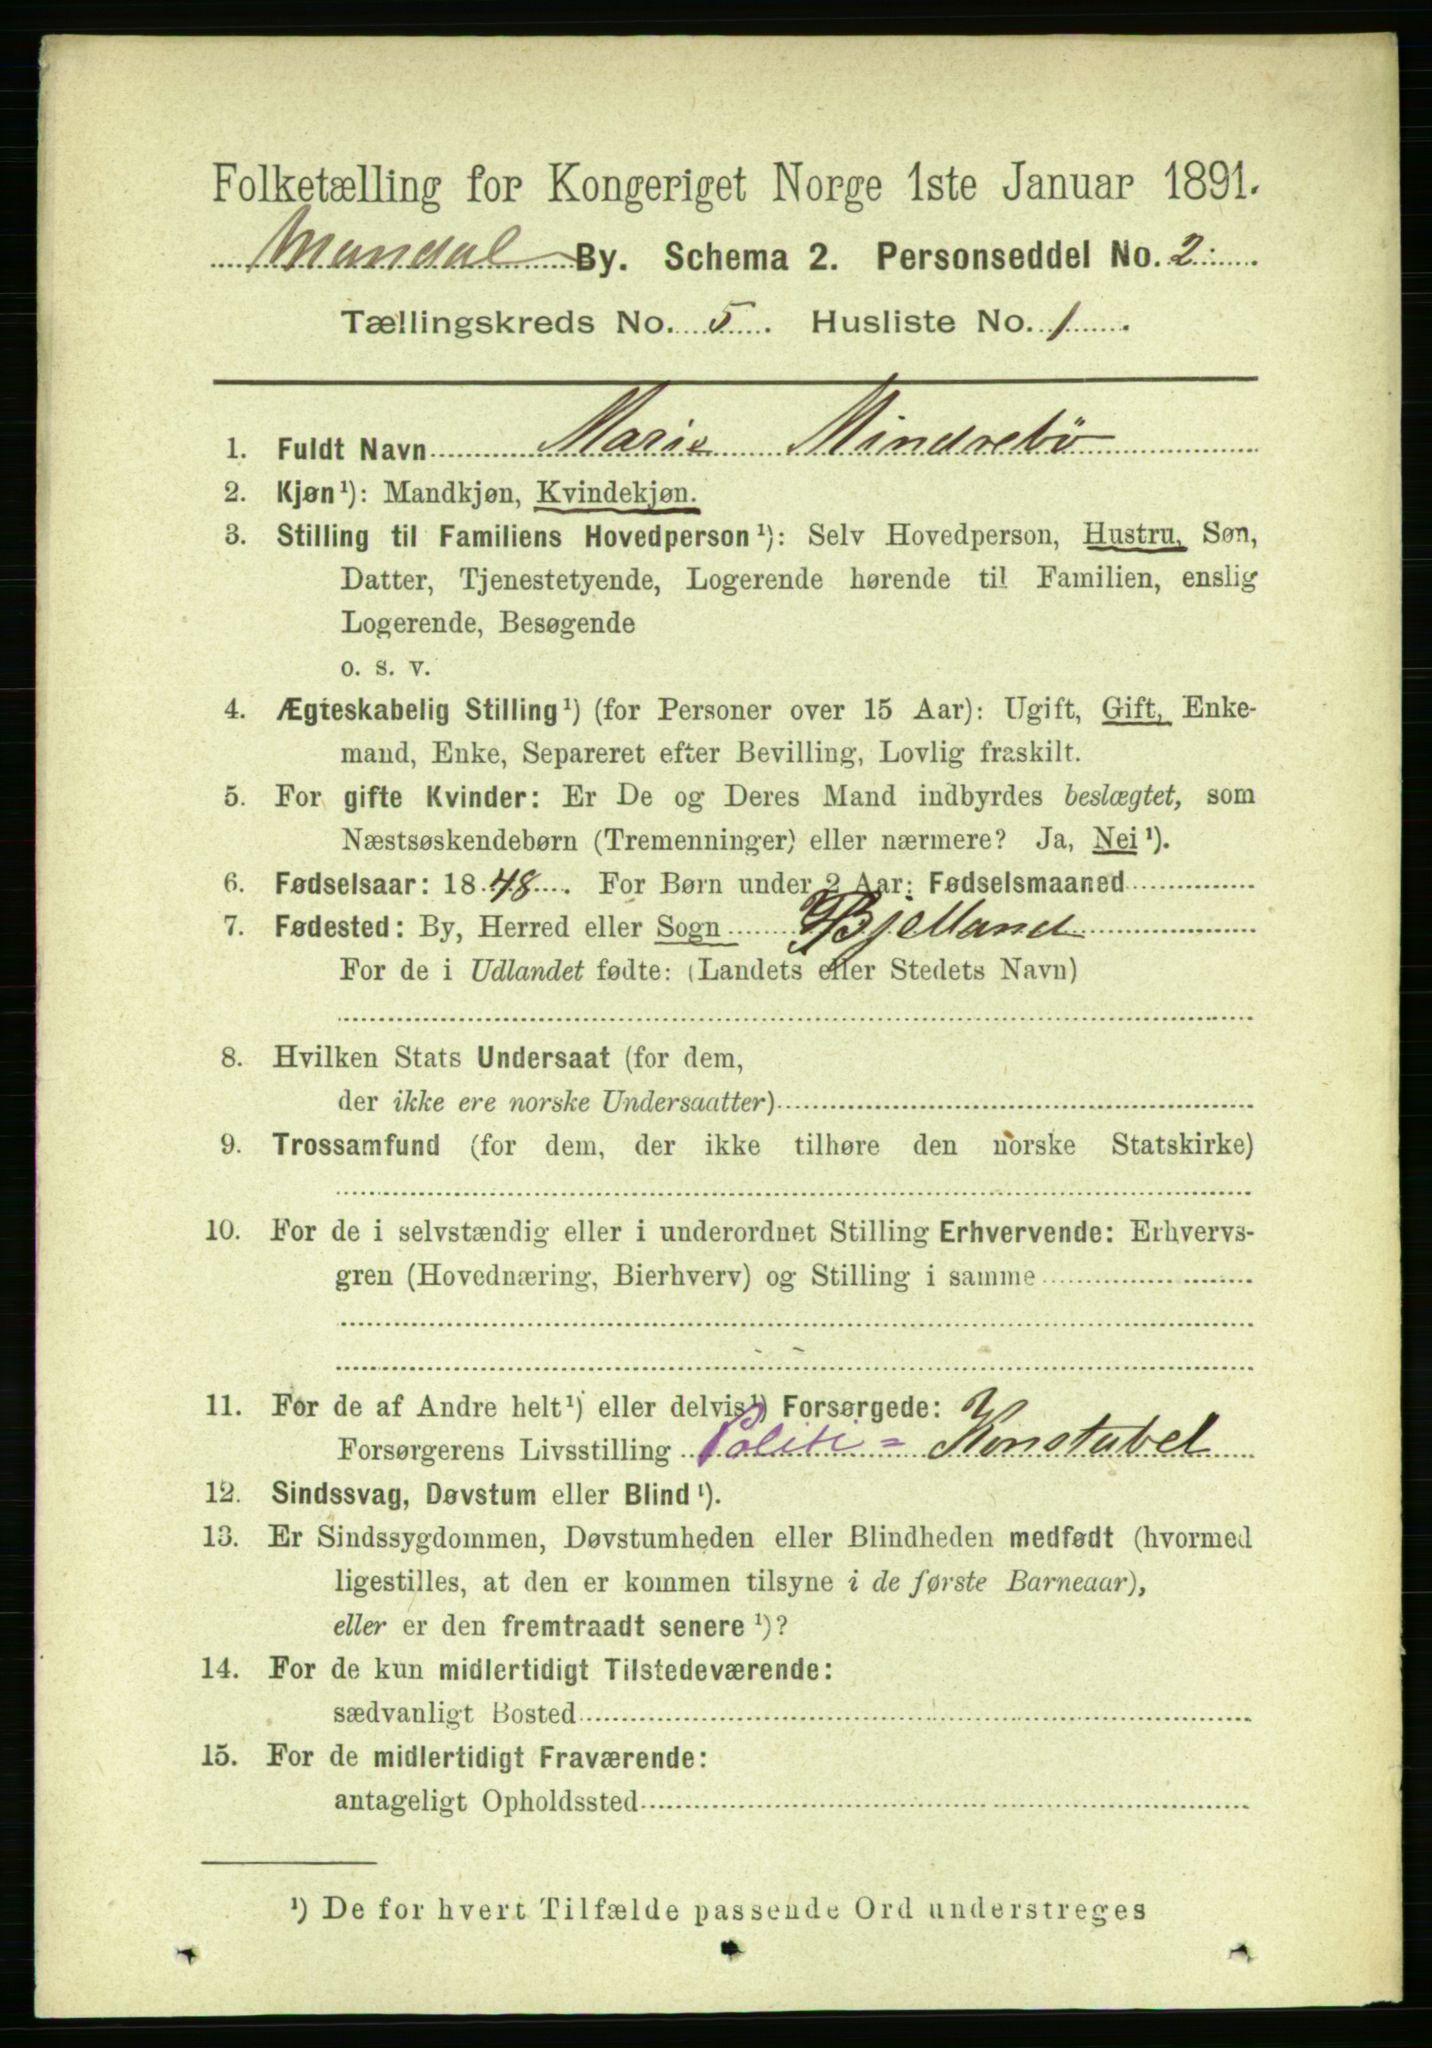 Folketælling for Kongeriget Norge 1ste Januar 1891.
Mandal By. Schema 2. Personseddel No. 2
Tællingskreds No. 5. Husliste No. 1.
1. Fuldt Navn Marie Mindrebö
2. Kjøn¹): Mandkjøn, Kvindekjøn.
3. Stilling til Familiens Hovedperson¹): Selv Hovedperson, Hustru, Søn,
Datter, Tjenestetyende, Logerende hørende til Familien, enslig
Logerende, Besøgende
o. s. v.
4. Ægteskabelig Stilling¹) (for Personer over 15 Aar): Ugift, Gift, Enke-
mand, Enke, Separeret efter Bevilling, Lovlig fraskilt.
5. For gifte Kvinder: Er De og Deres Mand indbyrdes beslægtet, som
Næstsøskendebørn (Tremenninger) eller nærmere? Ja, Nei¹).
6. Fødselsaar: 1848. For Børn under 2 Aar: Fødselsmaaned
7. Fødested: By, Herred eller Sogn Bjelland
For de i Udlandet fødte: (Landets eller Stedets Navn)
8. Hvilken Stats Undersaat (for dem,
der ikke ere norske Undersaatter)
9. Trossamfund (for dem, der ikke tilhøre den norske Statskirke)
10. For de i selvstændig eller i underordnet Stilling Erhvervende: Erhvervs-
gren (Hovednæring, Bierhverv) og Stilling i samme
11. For de af Andre helt¹) eller delvis¹) Forsørgede:
Forsørgerens Livsstilling Politi = Konstabel
12. Sindssvag, Døvstum eller Blind¹).
13. Er Sindssygdommen, Døvstumheden eller Blindheden medfødt (hvormed
ligestilles, at den er kommen tilsyne i de første Barneaar),
eller er den fremtraadt senere¹)?
14. For de kun midlertidigt Tilstedeværende:
sædvanligt Bosted
15. For de midlertidigt Fraværende:
antageligt Opholdssted
¹) De for hvert Tilfælde passende Ord understreges